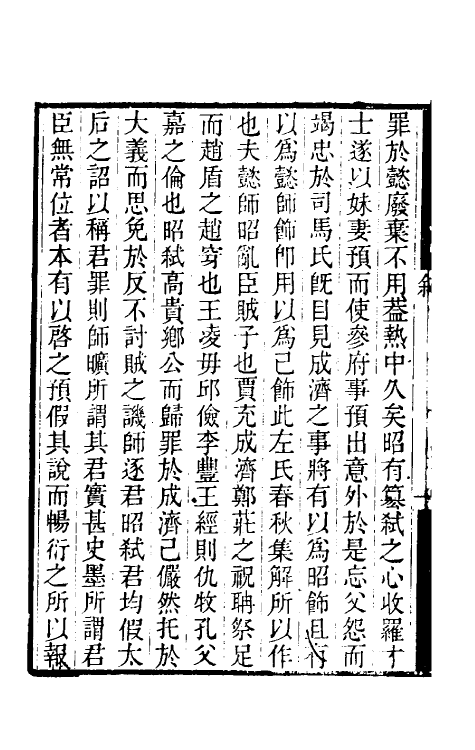 罪於懿廢棄不用葢熱中久矣昭有篡弑之心收羅才
士遂以妹妻預而使參府事預出意外於是忘父怨而
竭忠於司馬氏旣目見成濟之事將有以爲昭飾且有
以爲懿師飾卽用以爲己飾此左氏春秋集解所以作
也夫懿師昭亂臣賊子也賈充成濟鄭莊之祝聃祭足
而趙盾之趙穿也王凌毋邱儉李豐王經則仇牧孔父
嘉之倫也昭弑高貴鄉公而歸罪於成濟己儼然托於
大義而思免於反不討賊之譏師逐君昭弑君均假太
后之詔以稱君罪則師曠所謂其君實甚史墨所謂君
臣無常位者本有以啓之預假其說而暢衍之所以報